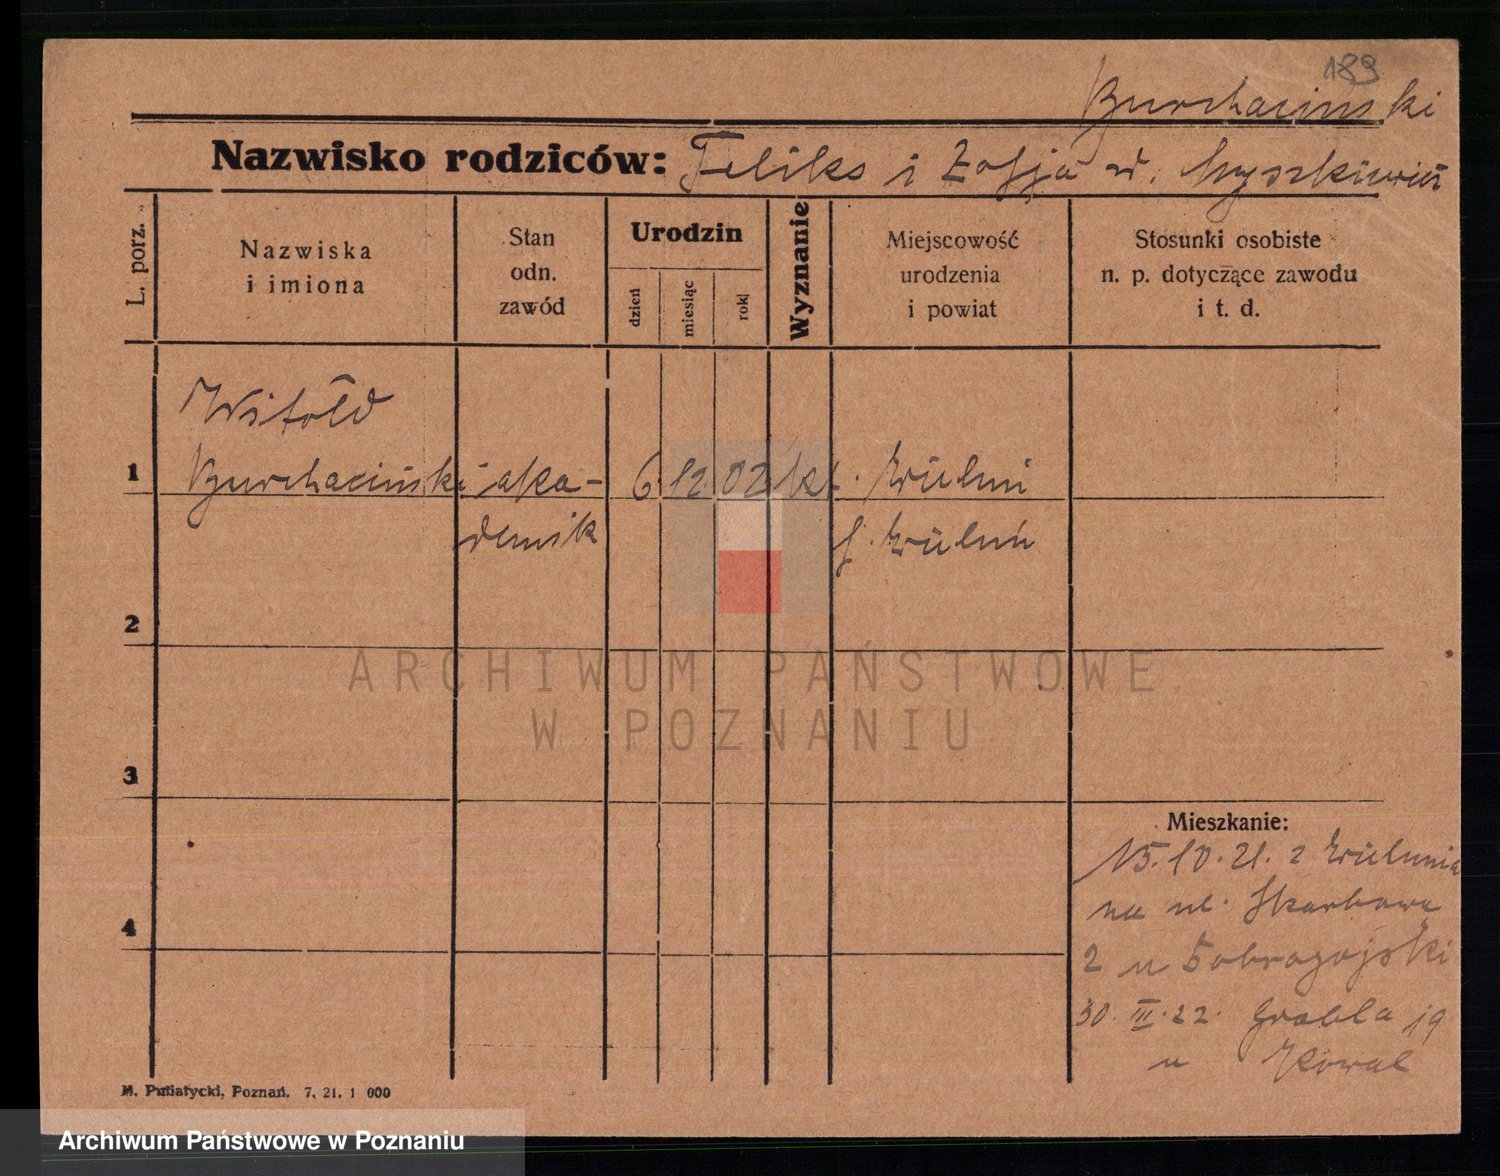 189
Burchaciński
Nazwisko rodziców: Feliks i Zofja d. Myszkiewicz
L. porz.
Nazwiska
i imiona
Stan
odn.
zawód
Urodzin
dzień
miesiąc
rok
Wyznanie
Miejscowość
urodzenia
i powiat
Stosunki osobiste
n. p. dotyczące zawodu
i t. d.
Witold
1 Burchaciński aka- 6 12 02 kt. Wieluń
demik p. Wieluń
2
3
4
Mieszkanie:
15.10.21. z Wielunia
na ul. Skarbową
2 u Dobrogojski
30. III. 22. Grobla 19
u Kowal
M. Putiatycki, Poznań. 7. 21. 1 000
ARCHIWUM PAŃSTWOWE
W POZNANIU
Archiwum Państwowe w Poznaniu